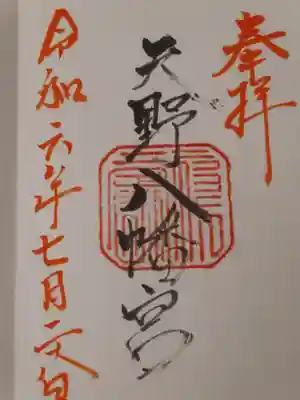 奉拝
矢野八幡宮
令和六年七月二日